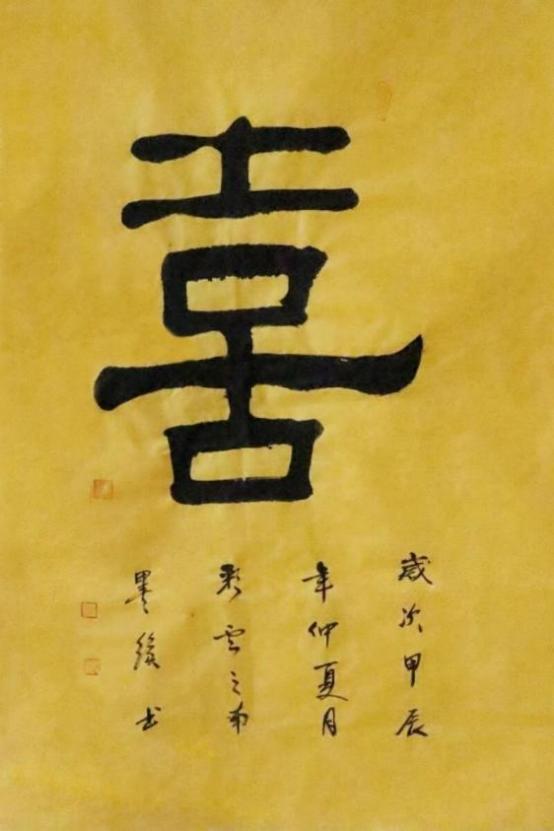 喜
歲次甲辰
年仲夏月
彩雲之南
墨緣書